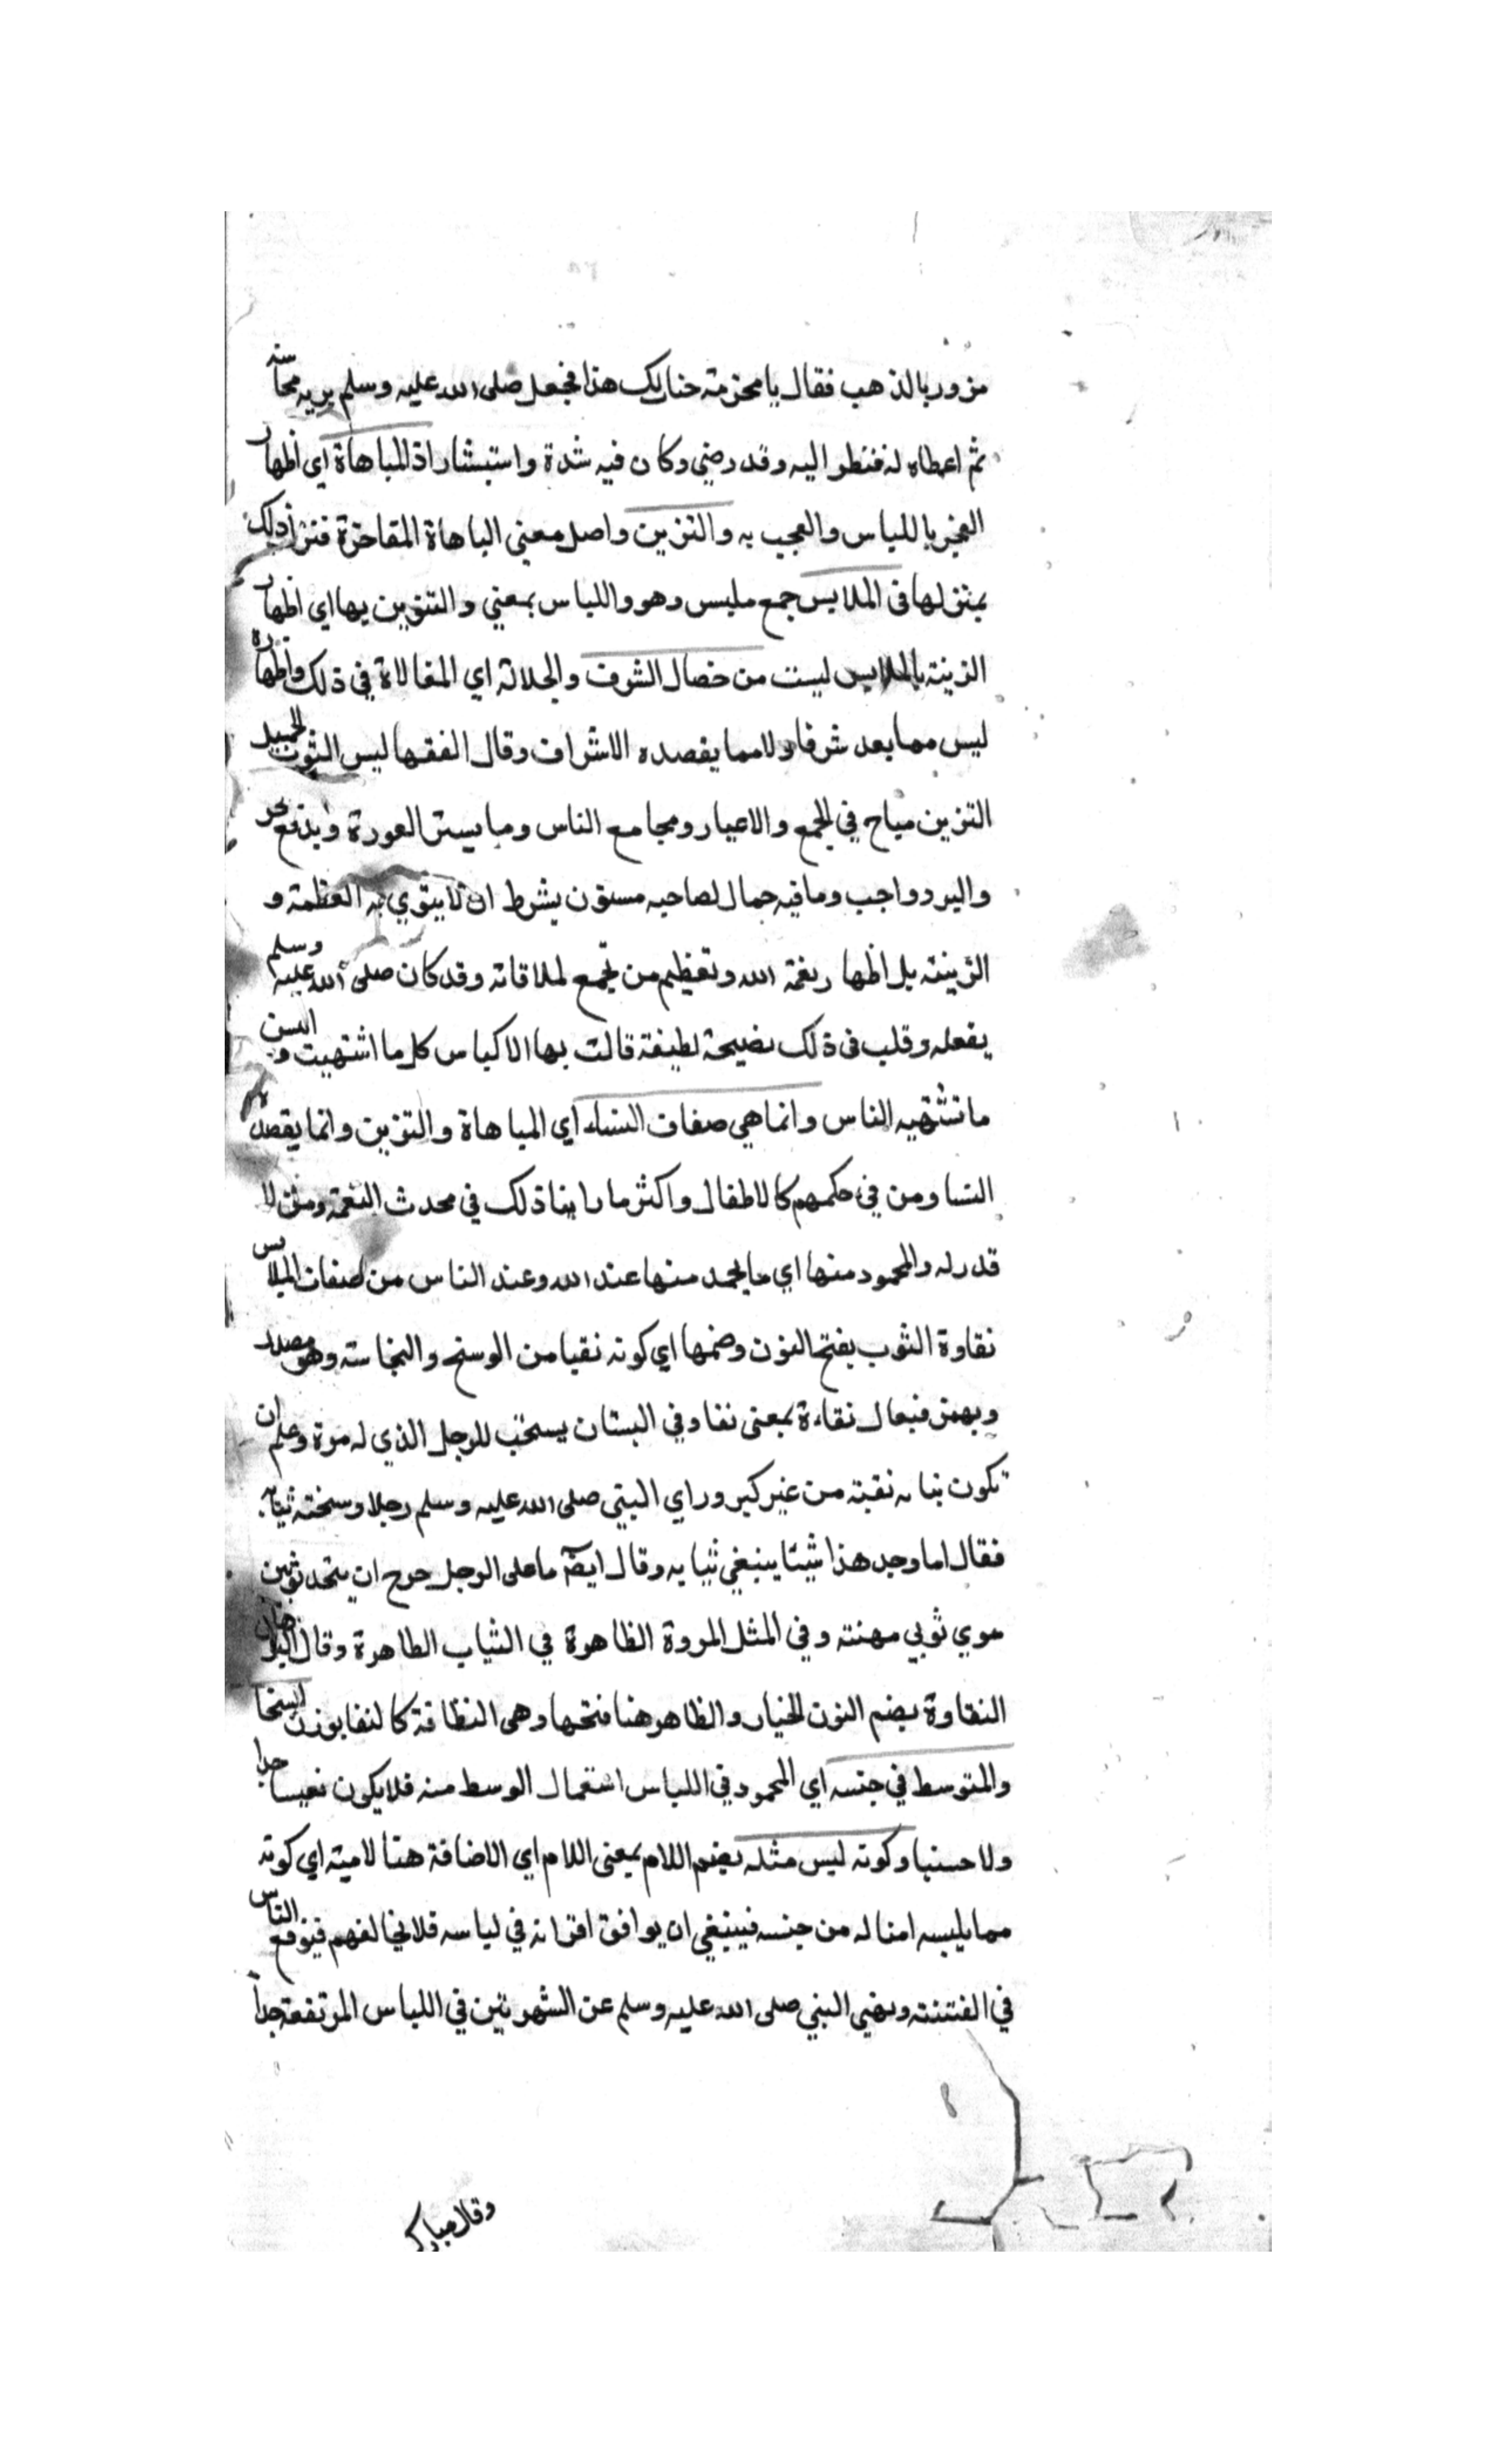 مزور بالذهب فقال يا مخرمة خبانا لك هذا فجعل صلى الله عليه وسلم يريه محاسنه
ثم اعطاه له فنظر اليه وقد رضي وكان فيه شدة واستبشار اذ المباهاة اي اظهار
الفخر باللباس والعجب به والتزين واصل معنى الباهاة المفاخرة فنزل ذلك
بمنزلها في الملابس جمع ملبس وهو واللباس بمعني والتزين بها اي اظهار
الزينة بالملابس ليست من خصال الشرف والجلالة اي المغالاة في ذلك واظهاره
ليس مما يعد شرفا ولا مما يقصده الاشراف وقال الفقها لبس الثوب الجميل
التزين مباح في الجمع والاعياد ومجامع الناس وما يستر العورة ويدفع الحر
والبرد واجب وما فيه جمال لصاحبه مسنون بشرط ان لا ينوي به العظمة و
الزينة بل اظهار نعمة الله وتعظيم من تجمع لملاقاته وقد كان صلى الله عليه وسلم
يفعله وقلت في ذلك نصيحة لطيفة قالت بها الاكياس كل ما اشتهيت و البسن
ما تشتهيه الناس وانما هي صفات النساء اي المباهاة والتزين وانما يقصده
النسا ومن في حكمهم كالاطفال واكثر ما راينا ذلك في محدث النعمة ومن لا
قدر له والمحمود منها اي ما يحمد منها عند الله وعند الناس من صفات الملابس
نقاوة الثوب بفتح النون وضمها اي كونه نقيا من الوسخ والنجاسة وهو مصدر
ويهمز فيقال نقاءة بمعنى نقا وفي البستان يستحب للرجل الذي له مروة وعلم ان
تكون ثيابه نقية من غير كبر وراي النبي صلى الله عليه وسلم رجلا وسخة ثيابه
فقال اما وجد هذا شيئا ينقي ثيابه وقال ايضا ما على الرجل حرج ان يتخذ ثوبين
سوي ثوبي مهنته وفي المثل المروة الظاهرة في الثياب الطاهرة وقال البرهان
النقاوة بضم النون الخيار والظاهر هنا فتحها وهي النظافة كالنقا بوزن السخا
والمتوسط في جنسه اي المحمود في اللباس استعمال الوسط منه فلا يكون نفيسا جدا
ولا خسيسا وكونه لبس مثله بضم اللام بمعنى اللام اي الاضافة هنا لامية اي كونه
مما يلبسه امثاله من جنسه فينبغي ان يوافق اقرانه في لباسه فلا يخالفهم فيوقع الناس
في الفتنة ونهي النبي صلى الله عليه وسلم عن الشهرتين في اللباس المرتفعة جدا